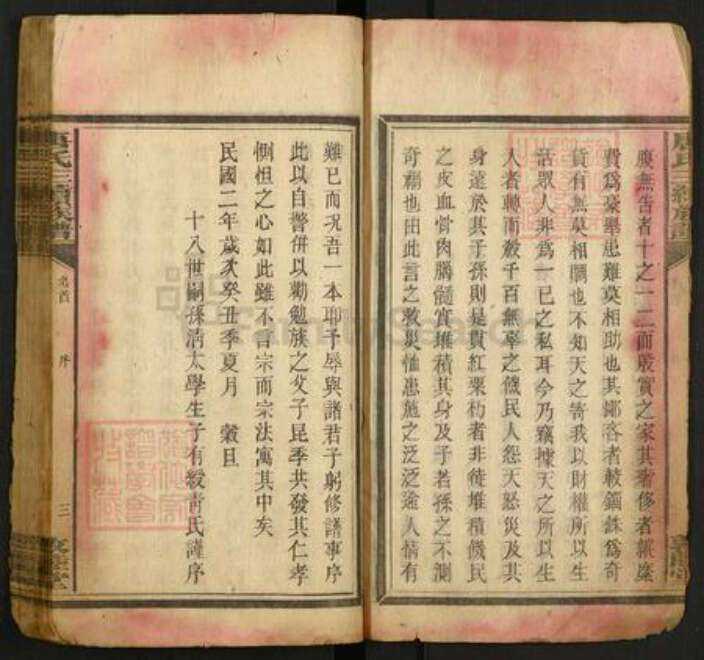 腹無告者十之一二而殷實之家其奢侈者輒糜
費爲豪舉患難莫相助也其鄙吝者較錙銖爲奇
貨有無莫相賙也不知天之寄我以財權所以生
活眾人非爲一己之私耳今乃竊據天之所以生
人者轉而殺千百無辜之饑民人怨天怒災及其
身遠於其子孫則是貫紅粟朽者非徒堆積饑民
之皮血骨肉腦髓實堆積其身及子若孫之不測
奇禍也由此言之救災恤患施之泛泛途人情有
唐氏三續族譜
卷首
序
三
難已而况吾一本聊予辱與諸君子躬修譜事序
此以自警併以勸勉族之父子昆季共發其仁孝
惻怛之心如此雖不言宗而宗法寓其中矣
民國二年歲次癸丑季夏月 榖旦
十八世嗣孫清太學生子有綬青氏謹序
FamilySearch